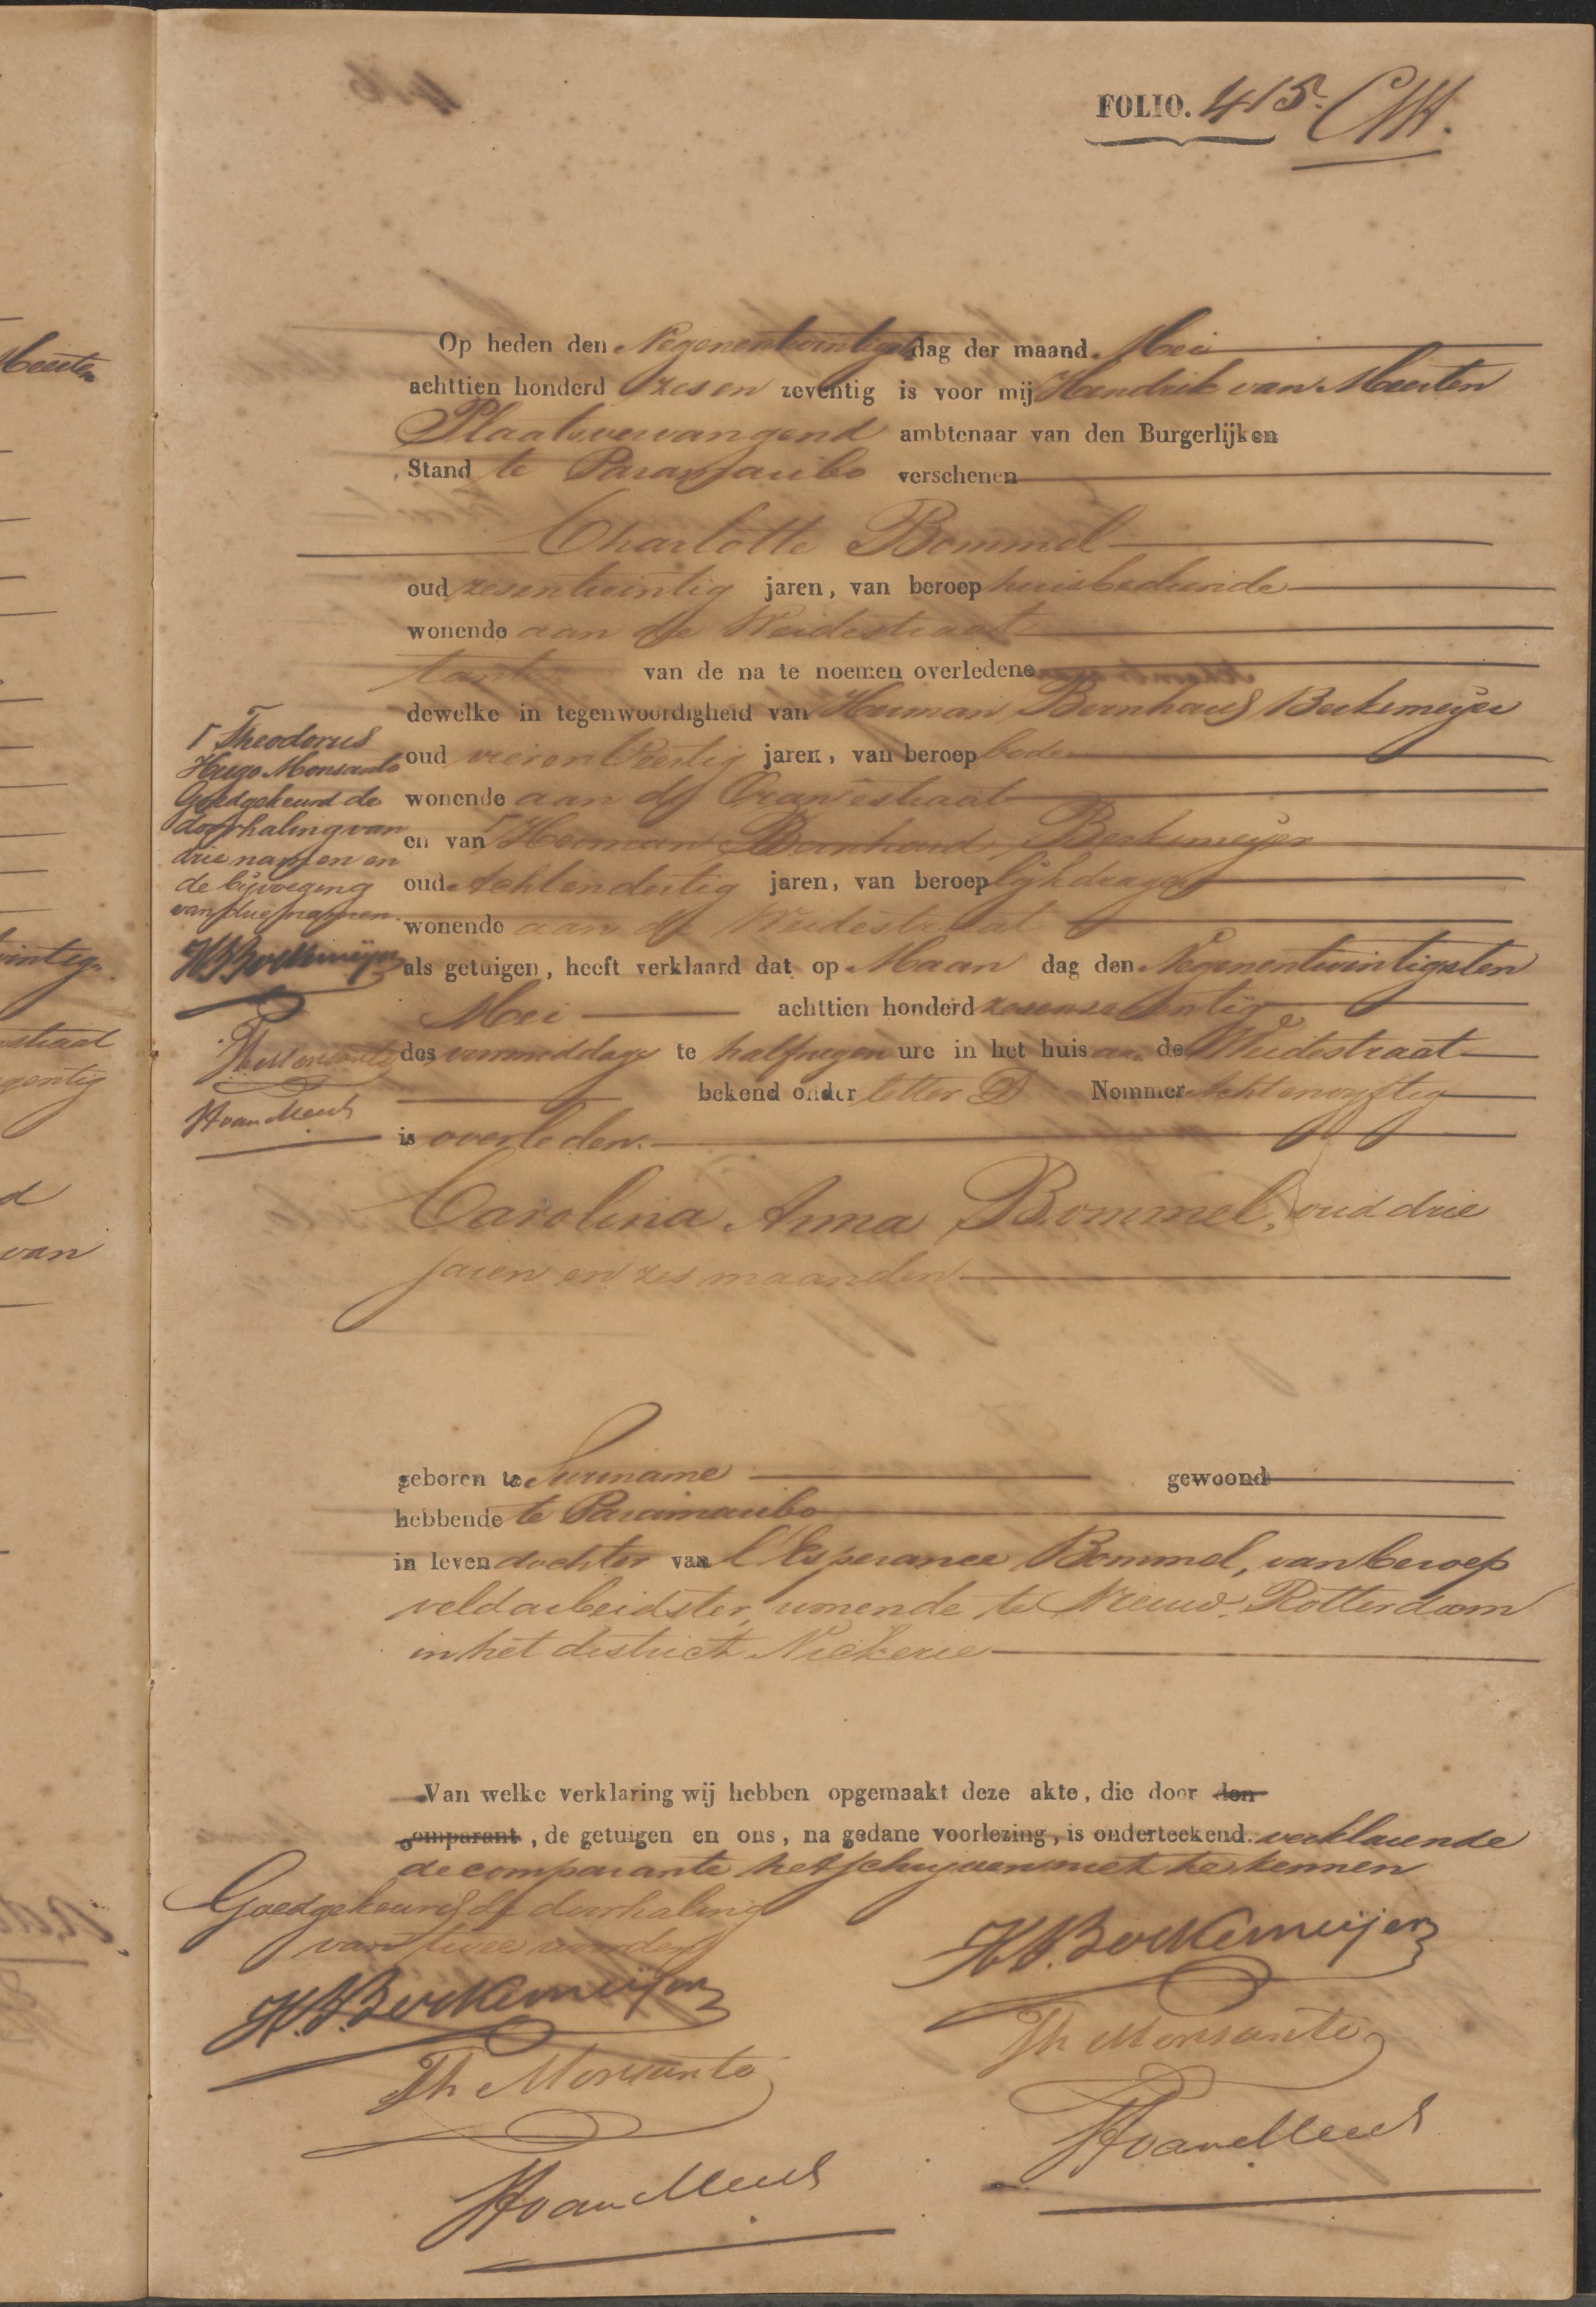 FOLIO. 415. CM.
Op heden den Negenentwintigst dag der maand Mei
achttien honderd zes en zeventig is voor mij Hendrik van Meerten
Plaatsvervangend ambtenaar van den Burgerlijken
Stand te Paramaribo verschenen
Charlotte Bommel
oud zesentwintig jaren, van beroep huisbediende
wonende aan de Weidestraat
tante van de na te noemen overledene
dewelke in tegenwoordigheid van Herman Bernhard Berkemeijer
oud vierenveertig jaren, van beroep bode
wonende aan de Oranjestraat
en van Herman Bernhard Berkemeijer
oud Achtendertig jaren, van beroep lijkdrager
wonende aan de Weidestraat
als getuigen, heeft verklaard dat op Maan dag den Negenentwintigsten
Mei achttien honderd zesenzeventig
des voormiddags te halfnegen ure in het huis aan de Weidestraat
bekend onder letter D Nommer Achtenvyftig
is overleden.
Carolina Anna Bommel, oud drie
jaren en zes maanden
geboren te Suriname gewoond
hebbende te Paramaribo
in leven dochter van l'Esperance Bommel, van beroep
veldarbeidster, wonende te Nieuw-Rotterdam
in het district Nickerie
Van welke verklaring wij hebben opgemaakt deze akte, die door den
comparant, de getuigen en ons, na gedane voorlezing, is onderteekend. verklarende
de comparante het schryven niet te kennen
Theodorus
Hugo Monsanto
Goedgekeurd de
doorhaling van
drie namen en
de bijvoeging
van drie namen.
HBBerkemeijer
Th Monsanto
HvanMeert
Goedgekeurd de doorhaling
van twee woorden
H.B.Berkemeijer
Th Monsanto
HvanMeert
H.B.Berkemeijer
Th Monsanto
HvanMeert